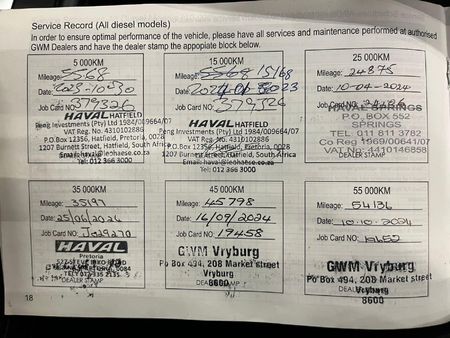 Service Record (All diesel models)
In order to ensure optimal performance of the vehicle, please have all services and maintenance performed at authorised
GWM Dealers and have the dealer stamp the appopiate block below.
5 000KM
Mileage: 5568
Date: 2023-10-30
Job Card NO: 379326
HAVAL HATFIELD
Peng Investments (Pty) Ltd 1984/009664/07
VAT Reg. No. 4310102886
P.O.Box 12356, Hatfield, Pretoria, 0028
1207 Burnett Street, Hatfield, South Africa
Email: haval@leohaese.co.za
Tel: 012 366 3000
15 000KM
Mileage: 5568 15168
Date:
Job Card NO: 379326
HAVAL HATFIELD
Peng Investments (Pty) Ltd 1984/009664/07
VAT Reg. No. 4310102886
P.O.Box 12356, Hatfield, Pretoria, 0028
1207 Burnett Street, Hatfield, South Africa
Email: haval@leohaese.co.za
Tel: 012 366 3000
25 000KM
Mileage: 24875
Date: 10-04-2024
Job Card NO:
HAVAL SPRINGS
P.O. BOX 552
SPRINGS
TEL: 011 811 3782
Co Reg 1969/00641/07
VAT No: 4410146858
DEALER STAMP
35 000KM
Mileage: 35197
Date: 25/06/2024
Job Card NO: J029270
HAVAL
Pretoria
DEALER STAMP
45 000KM
Mileage: 45798
Date: 16/09/2024
Job Card NO: 19458
GWM Vryburg
Po Box 494, 208 Market street
Vryburg
DEALER STAMP
8600
55 000KM
Mileage: 54136
Date: 10.10.2024
Job Card NO: 19652
GWM Vryburg
Po Box 494, 208 Market street
Vryburg
8600
18